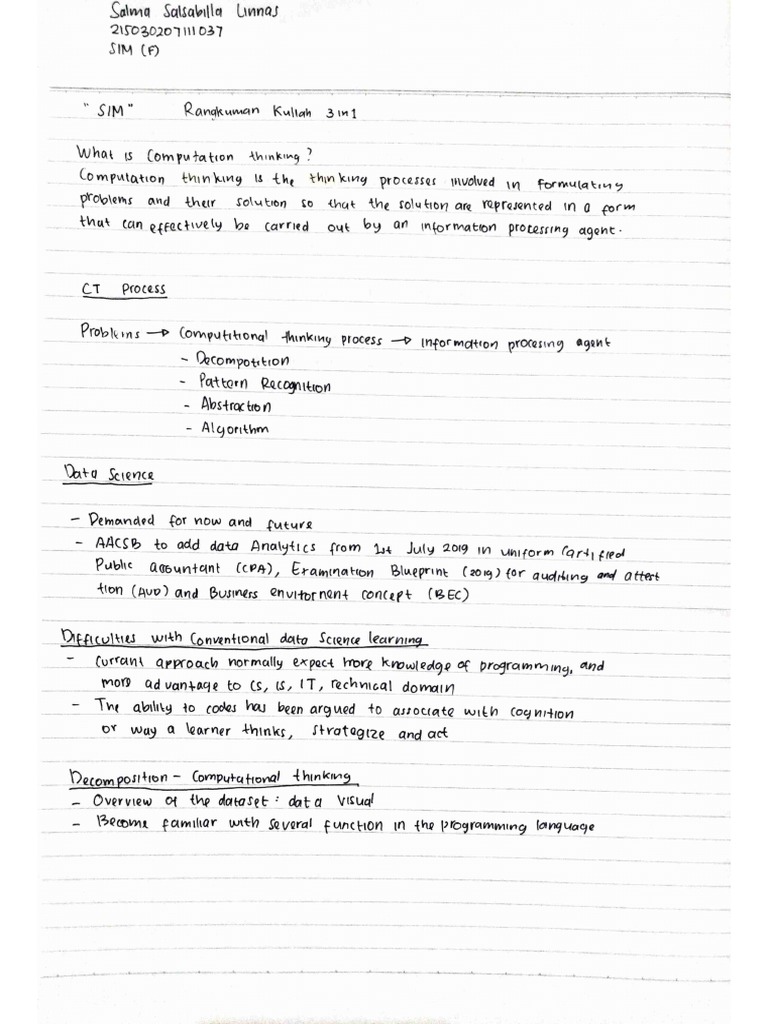 Salma Salsabilla Linnas
215030207111037
SIM (F)
"SIM" Rangkuman Kuliah 3 in 1
What is Computation thinking?
Computation thinking is the thinking processes involved in formulating
problems and their solution so that the solution are represented in a form
that can effectively be carried out by an information processing agent.
CT Process
Problems → Computitional thinking process → information procesing agent
- Decompotition
- Pattern Recognition
- Abstraction
- Algorithm
Data Science
- Demanded for now and future
- AACSB to add data Analytics from 1st July 2019 in uniform Cartified
Public accountant (CPA), Examination Blueprint (2019) for auditing and attert
tion (AUD) and Business envitornent concept (BEC)
Difficulties with Conventional data Science learning
- Current approach normally expect more knowledge of programming, and
more advantage to CS, IS, IT, technical domain
- The ability to codes has been argued to associate with cognition
or way a learner thinks, stratagize and act
Decomposition - Computational thinking
- Overview of the dataset : data visual
- Become familiar with several function in the programming language